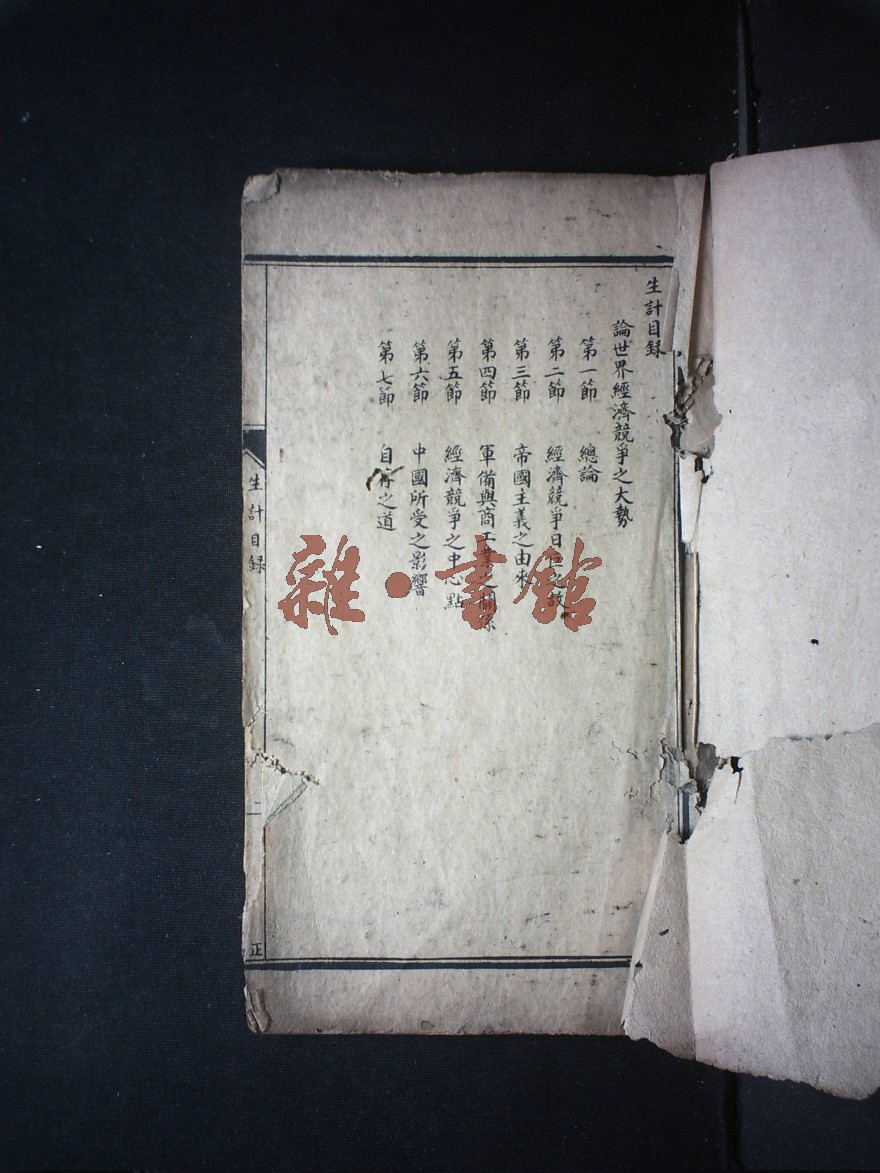 生計目録
論世界經濟競爭之大勢
第一節 總論
第二節 經濟競爭日 之故
第三節 帝國主義之由來
第四節 軍備與商工業之關係
第五節 經濟競爭之中心點
第六節 中國所受之影響
第七節 自存之道
生計目録
二
正
雜·書館